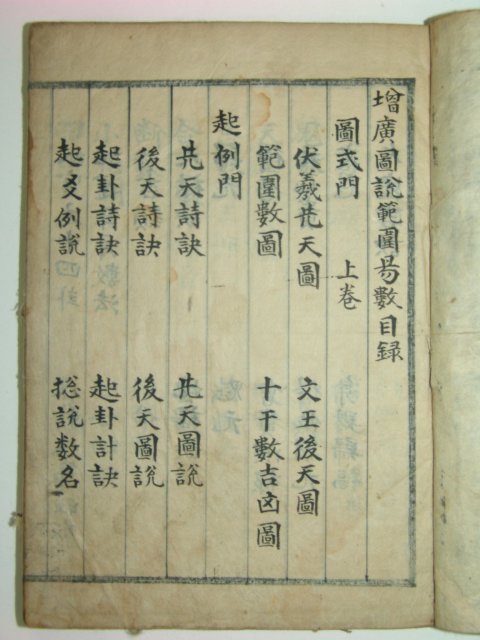 增廣圖說範圍易數目録
圖式門 上卷
伏羲先天圖 文王後天圖
範圍數圖 十干數吉凶圖
起例門
先天詩訣 先天圖說
後天詩訣 後天圖說
起卦詩訣 起卦計訣
起爻例說 捴說數名